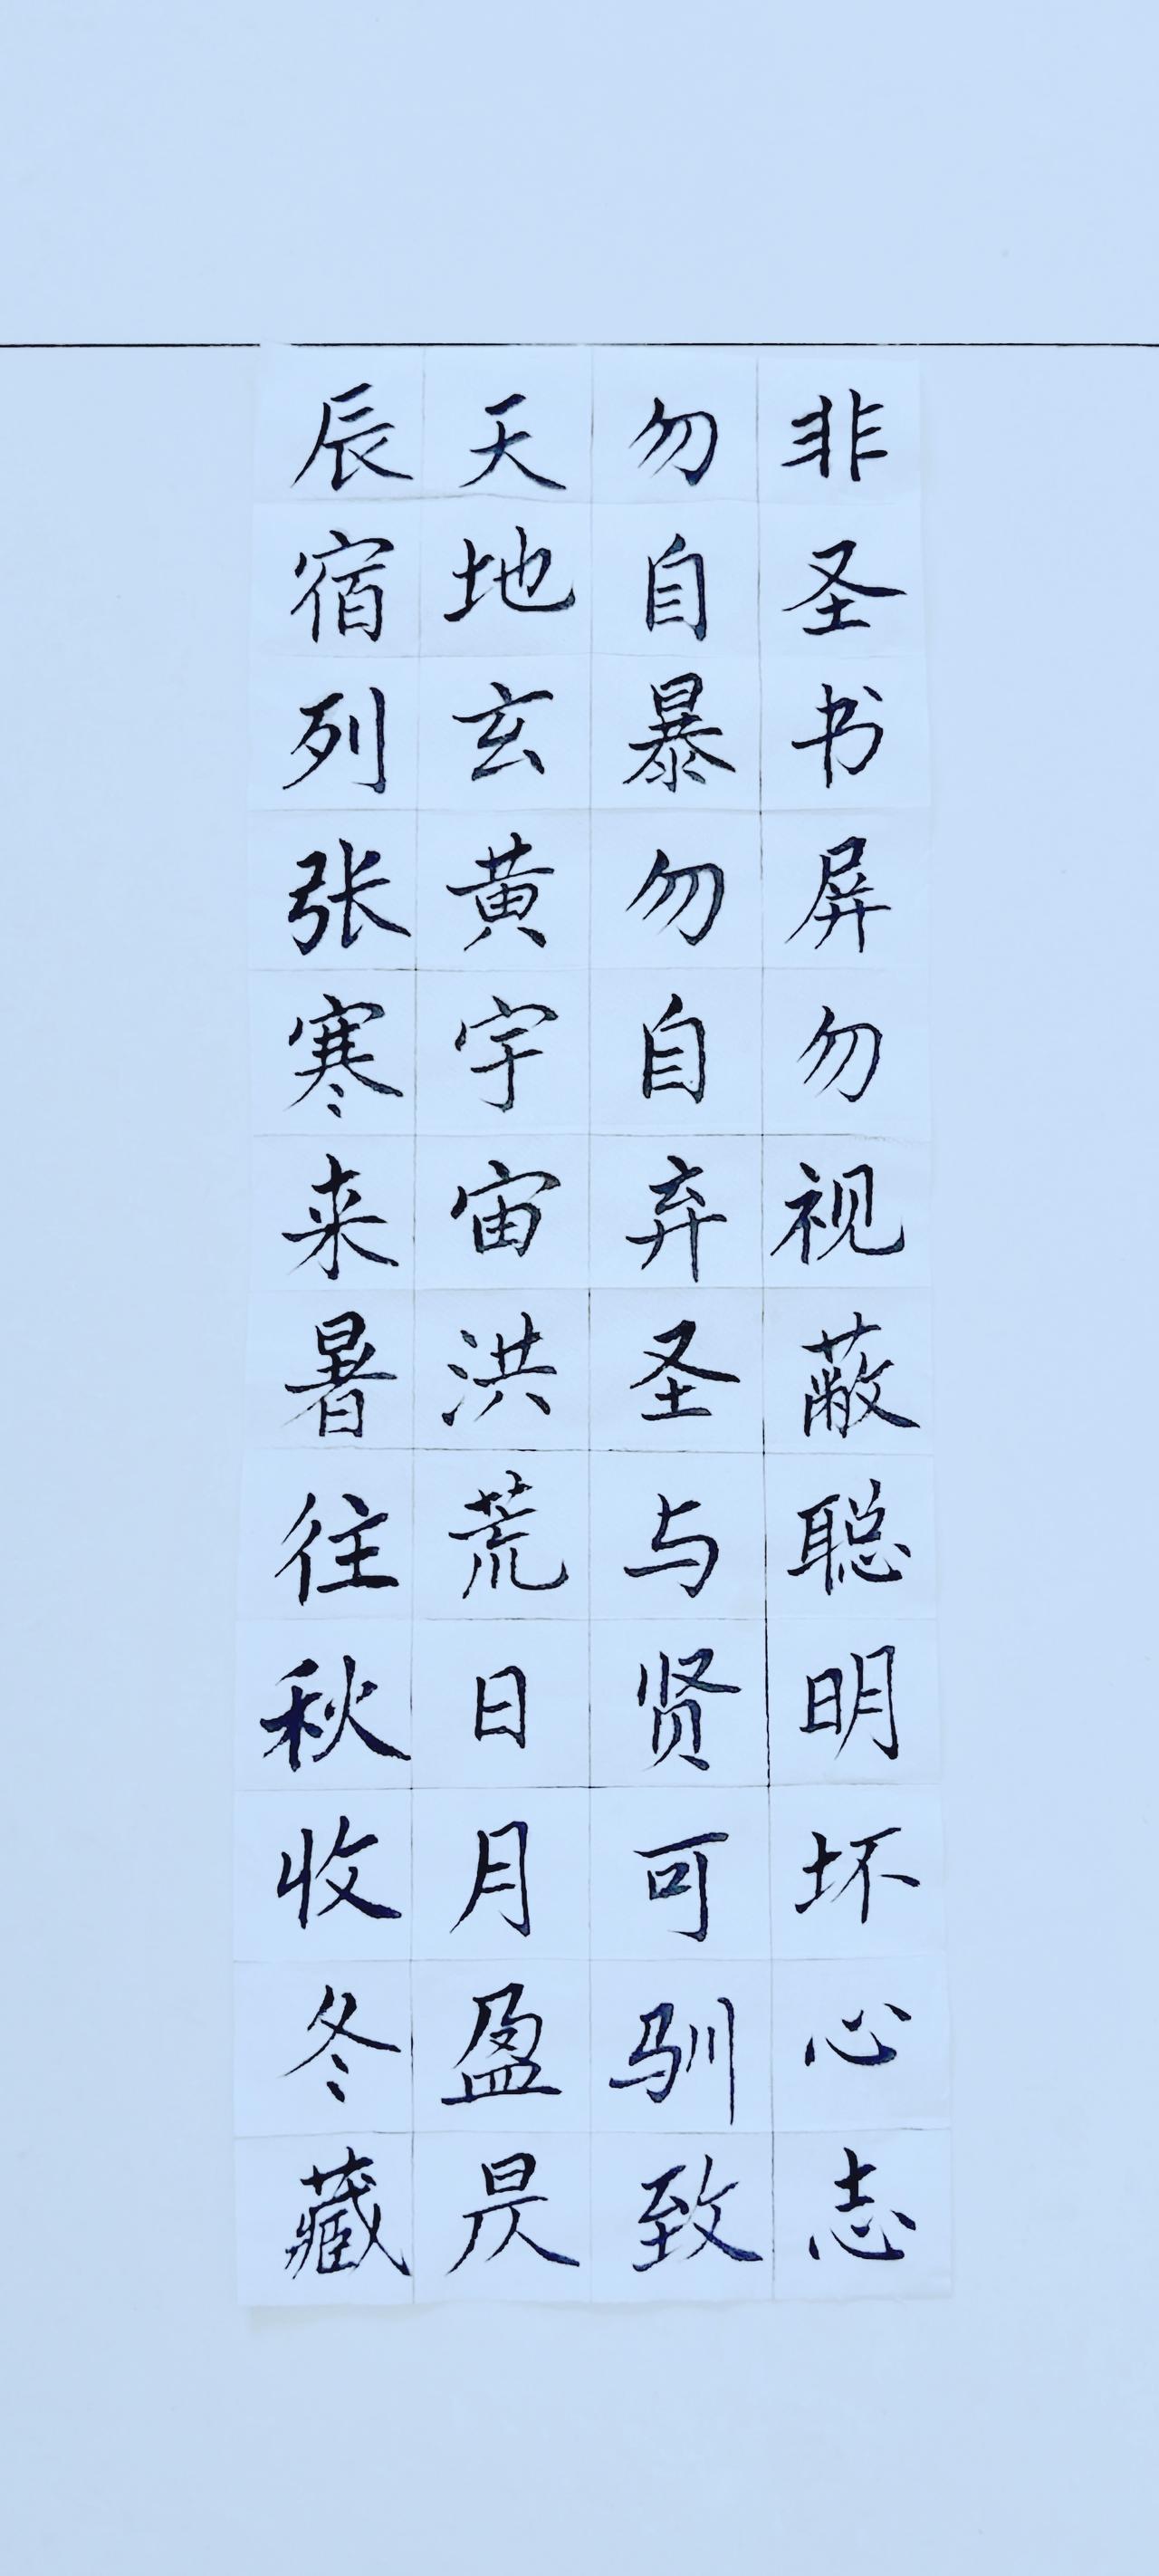 非圣书屏勿视蔽聪明坏心志
勿自暴勿自弃圣与贤可驯致
天地玄黄宇宙洪荒日月盈昃
辰宿列张寒来暑往秋收冬藏